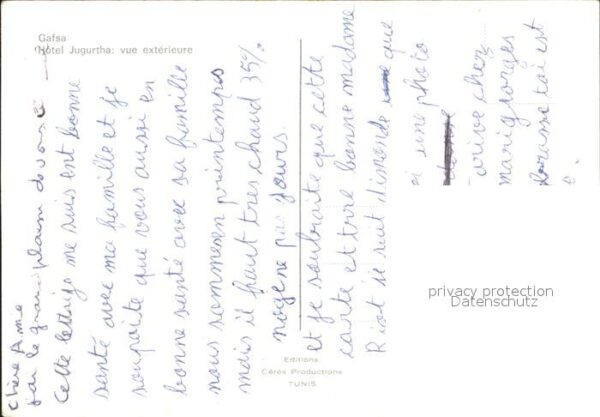 Gafsa
Hôtel Jugurtha: vue extérieure
Chère Amie
j'ai le grand plaisir de vous
Cette lettre je me suis ent bonne
santé avec ma famille et je
souhaite que vous aussi en
bonne santé avec sa famille
nous sommes en printemps
mais il faut tres chaud 35%
pas jours.
et je souhaite que cette
carte et trove bonne madame
je suit dismonde que
si une photo
arive chez
mari gorges
toi est
Editions
Cérès Productions
TUNIS
privacy protection
Datenschutz